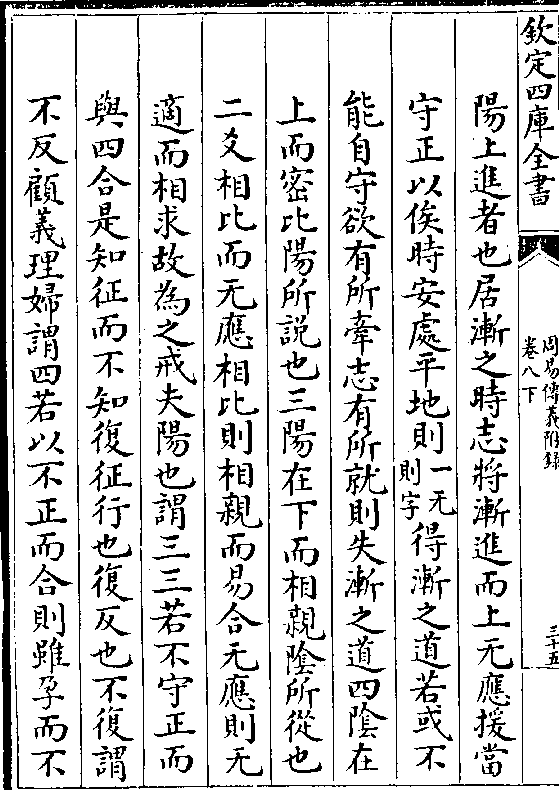 欽定四庫全書
周易傳義附錄
卷八下
三十五
陽上進者也居漸之時志將漸進而上无應援當
守正以俟時安處平地則一无則字得漸之道若或不
能自守欲有所牽志有所就則失漸之道四陰在
上而密比陽所說也三陽在下而相親陰所從也
二爻相比而无應相比則相親而易合无應則无
適而相求故為之戒夫陽也謂三三若不守正而
與四合是知征而不知復征行也復反也不復謂
不反顧義理婦謂四若以不正而合則雖孕而不